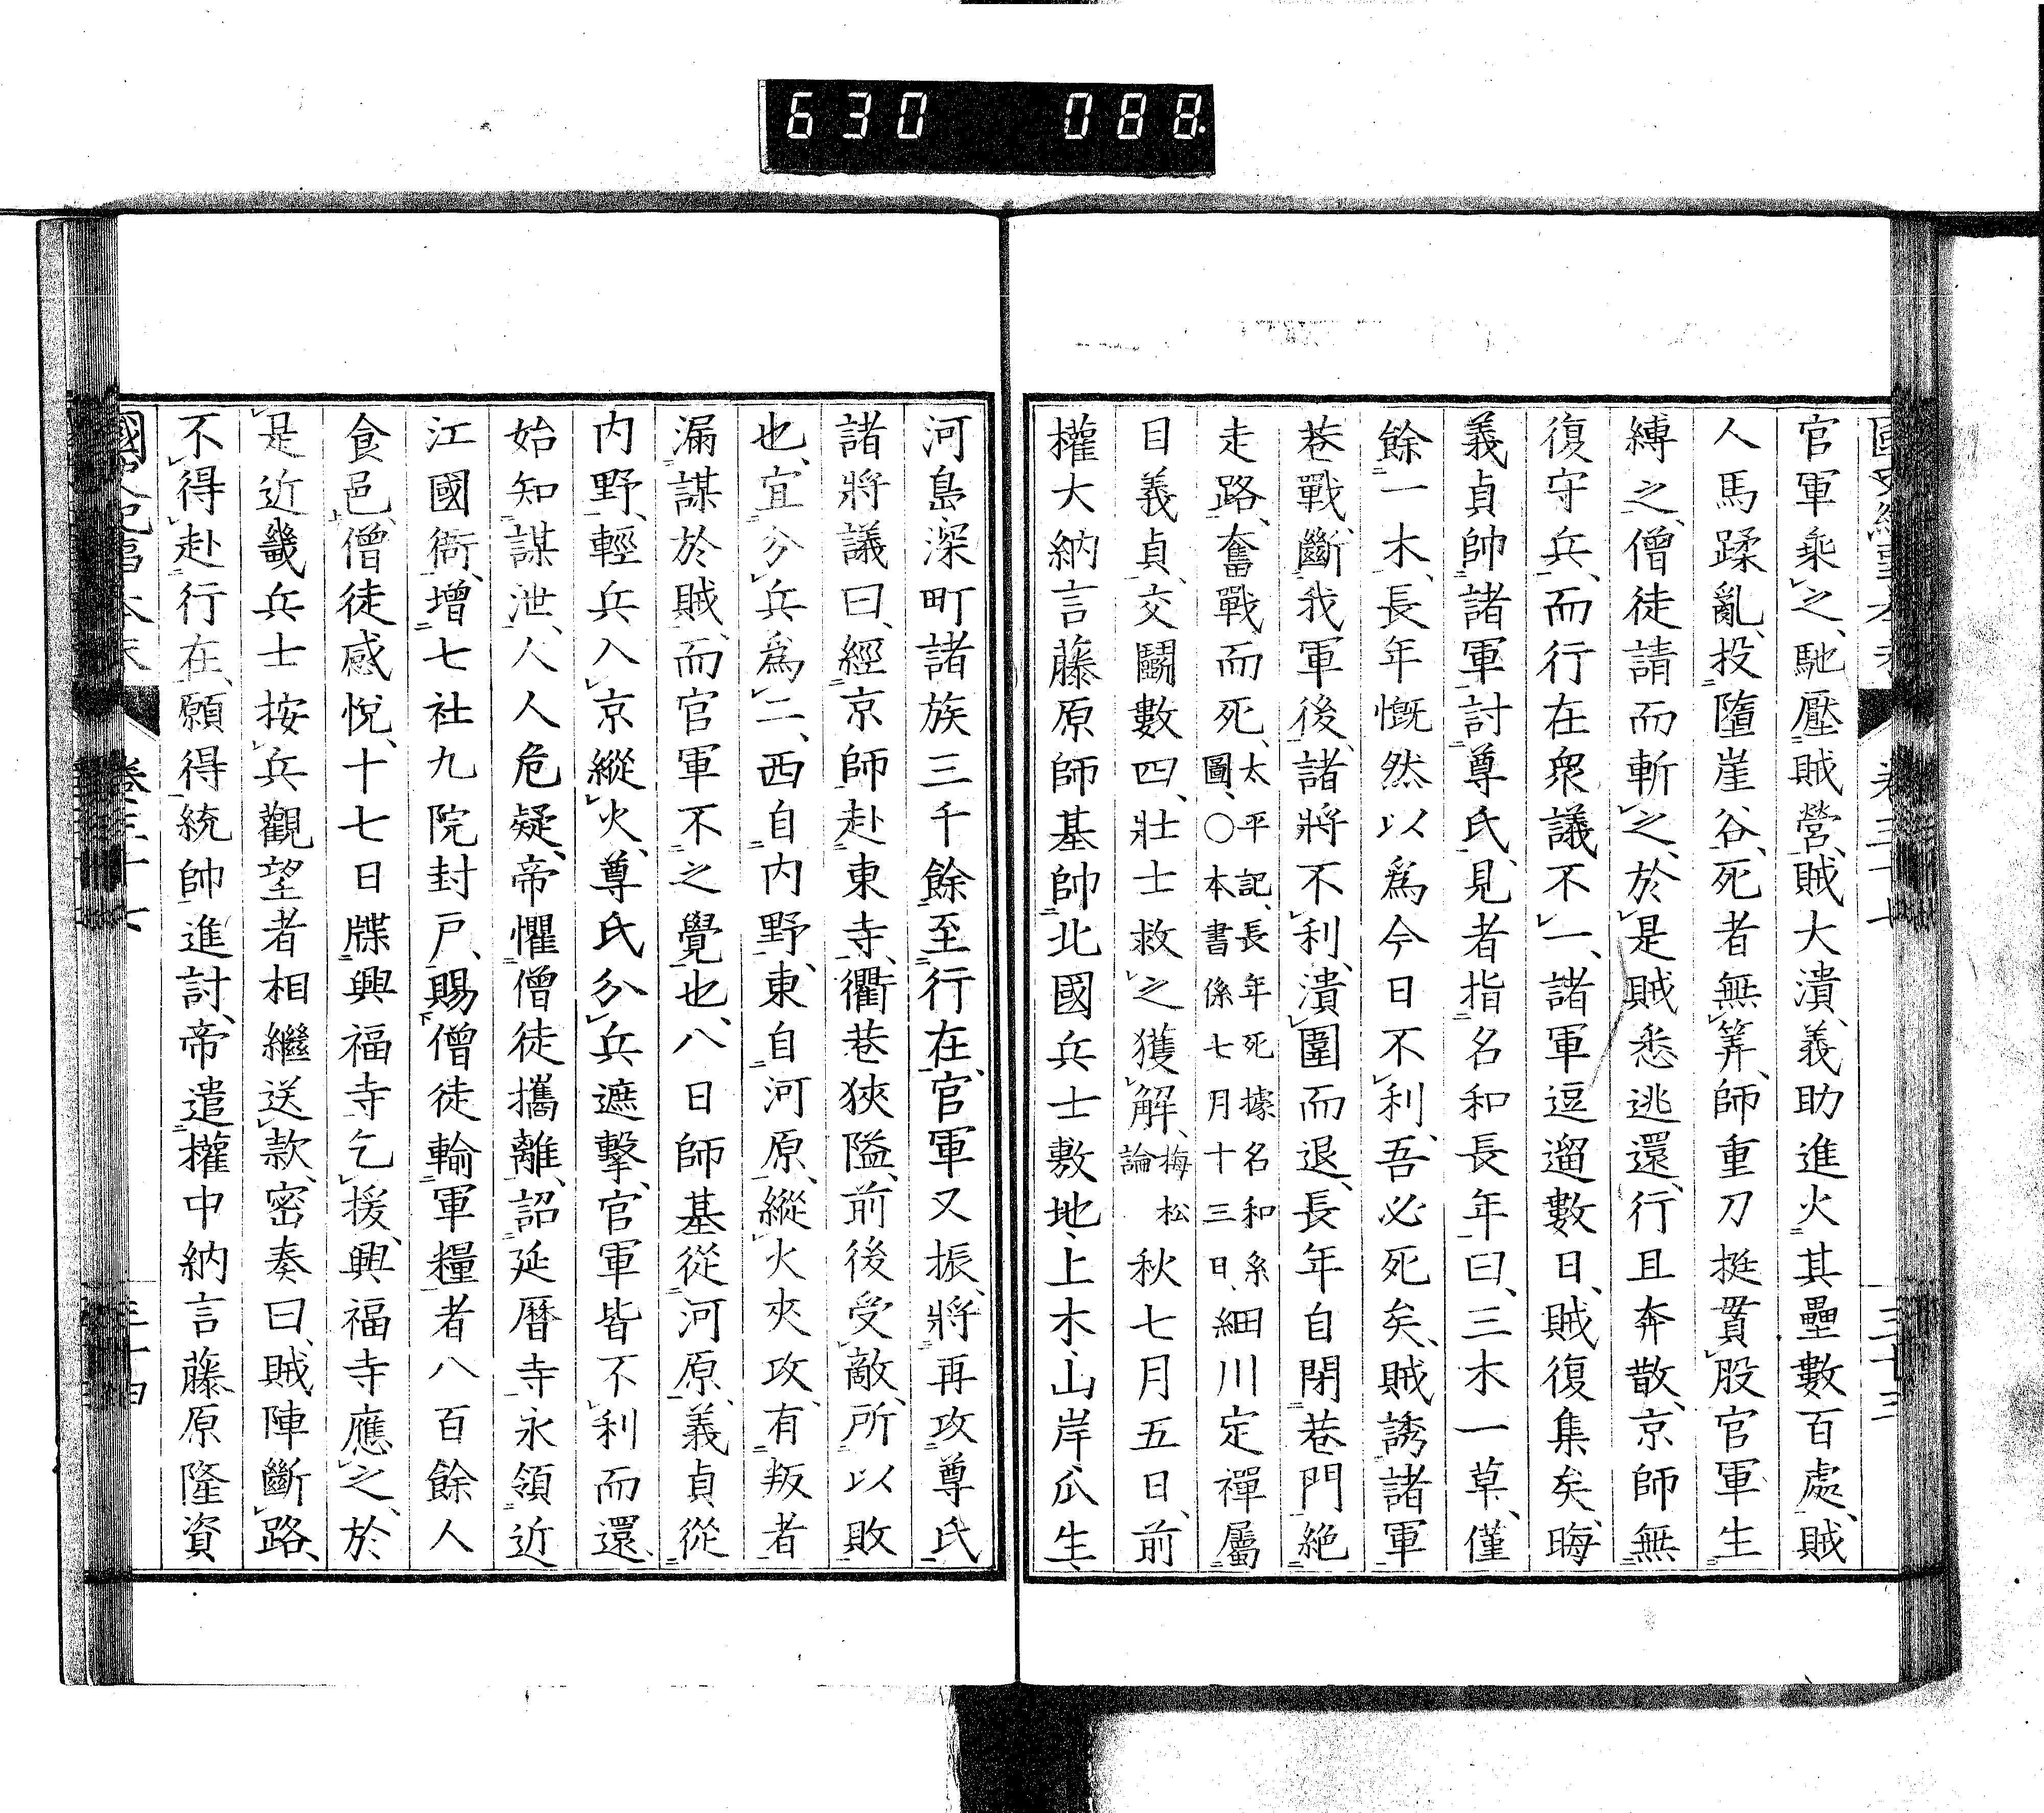 630 088
官軍乘之、馳壓賊營、賊大潰、義助進火其壘數百處、賊
人馬蹂亂、投墮崖谷、死者無筭、師重刀挺貫股官軍生
縛之、僧徒請而斬之、於是賊悉逃還、行且奔散、京師無
復守兵、而行在衆議不一、諸軍逗遛數日、賊復集矣、晦
義貞帥諸軍討尊氏、見者指名和長年曰、三木一草、僅
餘一木、長年慨然以爲今日不利、吾必死矣、賊誘諸軍
巷戰、斷我軍後、諸將不利、潰圍而退、長年自閉巷門絕
走路、奮戰而死、太平記、長年死據名和系圖、○本書係七月十三日、細川定禪屬
目義貞、交鬭數四、壯士救之獲解、梅松論秋七月五日、前
權大納言藤原師基帥北國兵士敷地、上木、山岸、瓜生、
河島、深町諸族三千餘至行在、官軍又振、將再攻尊氏
諸將議曰、經京師赴東寺、衢巷狹隘、前後受敵、所以敗
也、宜分兵爲二、西自内野、東自河原、縱火夾攻、有叛者
漏謀於賊、而官軍不之覺也、八日師基從河原、義貞從
内野、輕兵入京縱火、尊氏分兵遮擊、官軍皆不利而還、
始知謀泄、人人危疑、帝懼僧徒攜離、詔延曆寺永領近
江國衙、增七社九院封戸、賜僧徒輸軍糧者八百餘人
食邑、僧徒感悅、十七日牒興福寺乞援、興福寺應之、於
是近畿兵士按兵觀望者相繼送款、密奏曰、賊陣斷路、
不得赴行在、願得統帥進討、帝遣權中納言藤原隆資